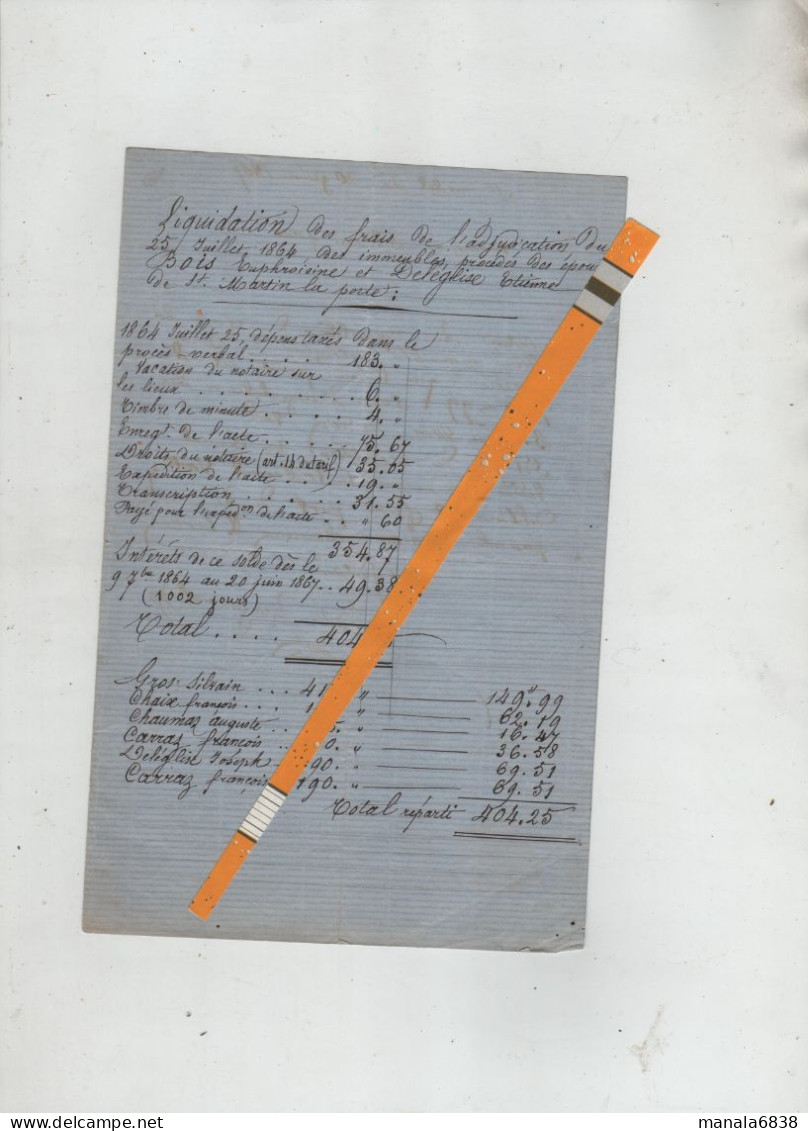 Liquidation des frais de l'adjudication du
25 Juillet 1864 des immeubles, procédés des épou
Bois Euphroisine et Deléglise Etienne
de St. Martin la porte :
1864 Juillet 25, dépens taxés dans le
procès-verbal . . . . 183. "
Vacation du notaire sur
les lieux . . . . . . . . . . 6. "
Timbre de minute . . . . 4. "
Enregt. de l'acte . . . . 75. 67
Droits du notaire (art. 14 du tarif) 35. 05
Expédition de l'acte . . . . 19. "
Transcription . . . . . 31. 55
Payé pour l'expédon de l'acte . . " 60
354. 87
Intérêts de ce solde dès le
9 7bre 1864 au 20 juin 1867 . . 49. 38
(1002 jours)
Total . . . . 404
Gros Silvain . . . 41 " 149. 99
Chaix françois . . . 1 " 62. 19
Chaumaz auguste . . 5. " 16. 47
Carraz françois . . 0. " 36. 58
Deléglise Joseph . . 90. " 69. 51
Carraz françois 190. " 69. 51
Total réparti 404. 25
manala6838